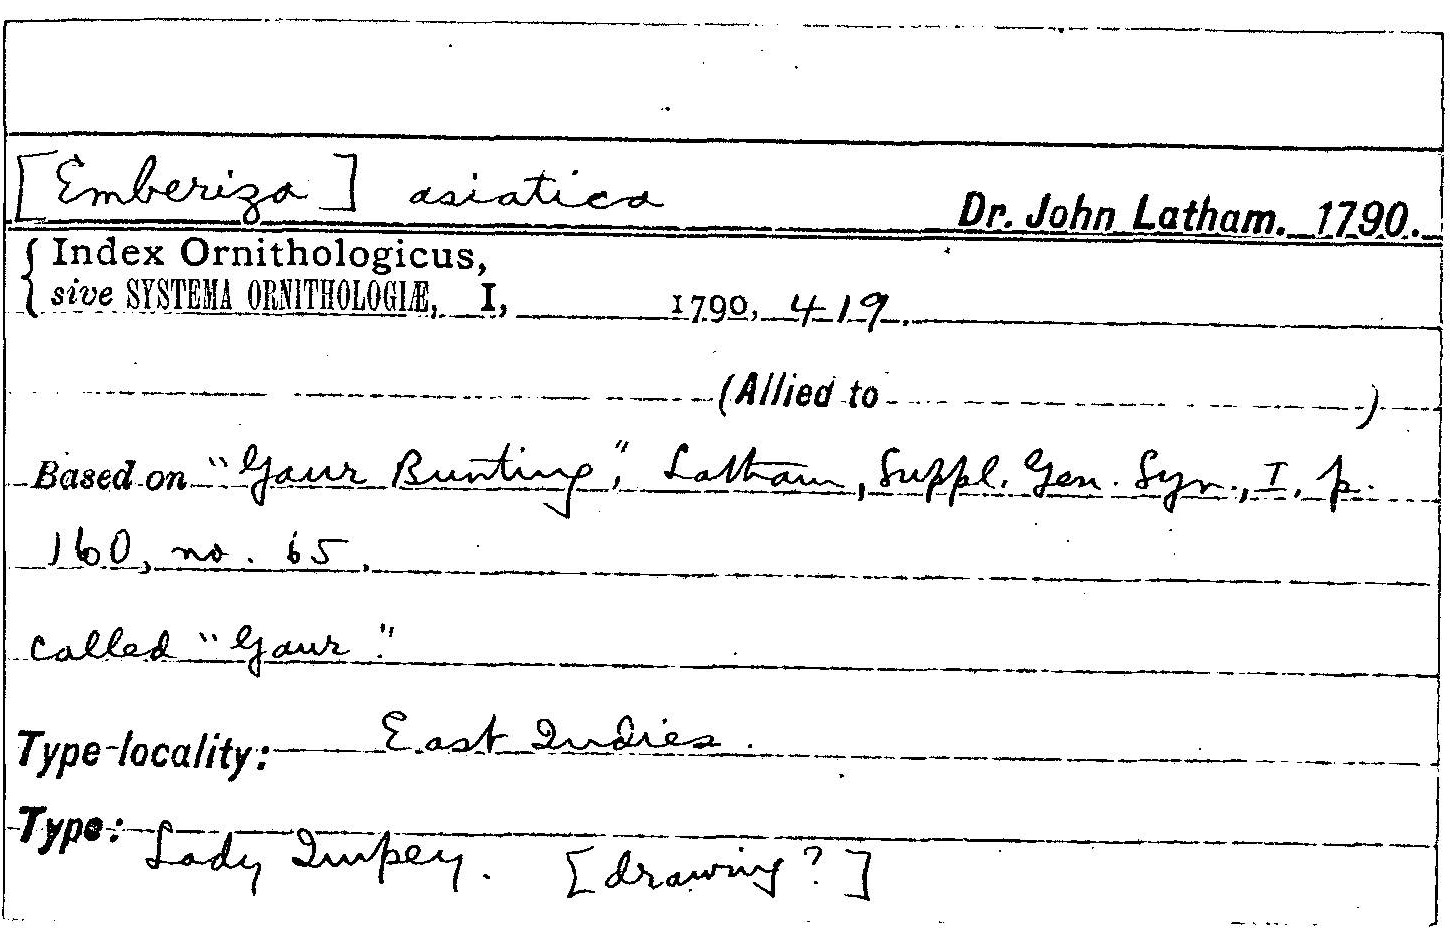 [Emberiza] asiatica Dr. John Latham. 1790.
{ Index Ornithologicus,
sive SYSTEMA ORNITHOLOGIÆ, I, 1790, 419.
(Allied to )
Based on "Gaur Bunting", Latham, Suppl. Gen. Syn., I, p.
160, no. 65.
called "Gaur."
Type-locality: East Indies.
Type: Lady Impey. [drawing?]